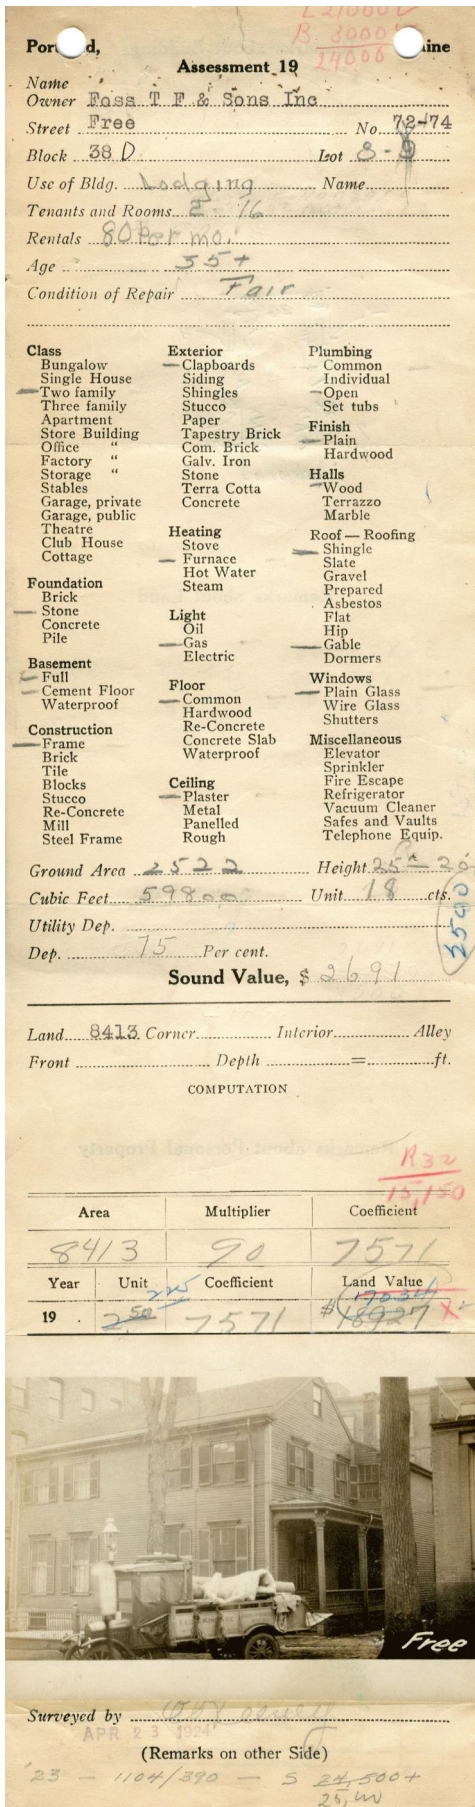 L 21000
B 3000
24000
Portland, Maine
Assessment 19
Name
Owner Foss T F & Sons Inc
Street Free No. 72-74
Block 38 D Lot 8-9
Use of Bldg. Lodging Name
Tenants and Rooms 2 - 16
Rentals 80 Per mo.
Age 35+
Condition of Repair Fair
Class
Bungalow
Single House
Two family
Three family
Apartment
Store Building
Office "
Factory "
Storage "
Stables
Garage, private
Garage, public
Theatre
Club House
Cottage
Foundation
Brick
Stone
Concrete
Pile
Basement
Full
Cement Floor
Waterproof
Construction
Frame
Brick
Tile
Blocks
Stucco
Re-Concrete
Mill
Steel Frame
Exterior
Clapboards
Siding
Shingles
Stucco
Paper
Tapestry Brick
Com. Brick
Galv. Iron
Stone
Terra Cotta
Concrete
Heating
Stove
Furnace
Hot Water
Steam
Light
Oil
Gas
Electric
Floor
Common
Hardwood
Re-Concrete
Concrete Slab
Waterproof
Ceiling
Plaster
Metal
Panelled
Rough
Plumbing
Common
Individual
Open
Set tubs
Finish
Plain
Hardwood
Halls
Wood
Terrazzo
Marble
Roof — Roofing
Shingle
Slate
Gravel
Prepared
Asbestos
Flat
Hip
Gable
Dormers
Windows
Plain Glass
Wire Glass
Shutters
Miscellaneous
Elevator
Sprinkler
Fire Escape
Refrigerator
Vacuum Cleaner
Safes and Vaults
Telephone Equip.
Ground Area 2522 Height 25 - 20
Cubic Feet 59800 Unit 18 cts.
2590
Utility Dep.
Dep. 75 Per cent.
Sound Value, $ 2691
Land 8413 Corner Interior Alley
Front Depth = ft.
COMPUTATION
R32
15,150
Area Multiplier Coefficient
8413 90 7571
Year Unit Coefficient Land Value
225 17034
19 2.50 7571 $18927 X
Free
Surveyed by
APR 23 1924
(Remarks on other Side)
'23 - 1104/390 - S 24,500+